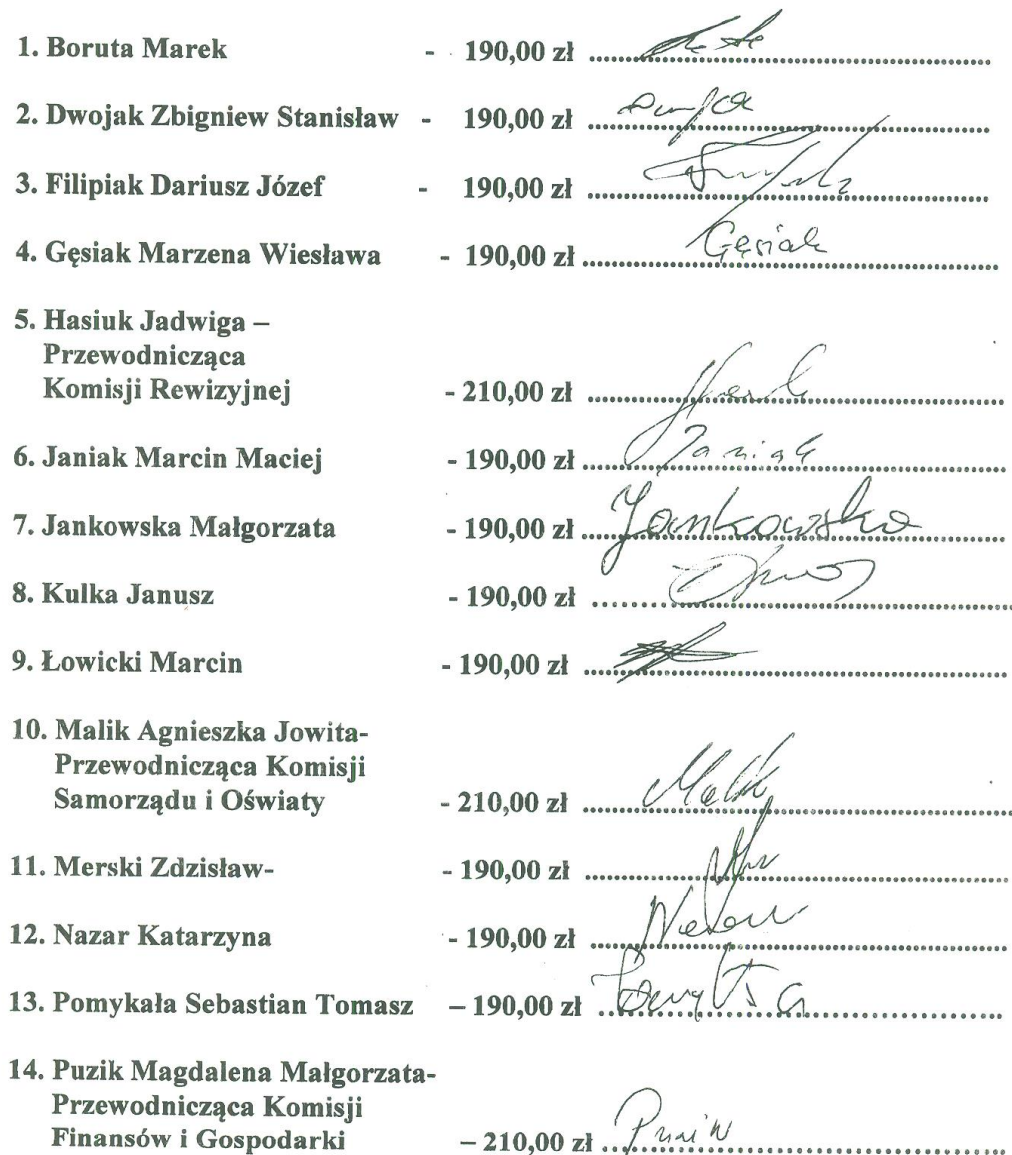 1. Boruta Marek - 190,00 zł ........................................
2. Dwojak Zbigniew Stanisław - 190,00 zł ........................................
3. Filipiak Dariusz Józef - 190,00 zł ........................................
4. Gęsiak Marzena Wiesława - 190,00 zł ........................................ Gęsiak
5. Hasiuk Jadwiga –
Przewodnicząca
Komisji Rewizyjnej - 210,00 zł ........................................
6. Janiak Marcin Maciej - 190,00 zł ........................................ Janiak
7. Jankowska Małgorzata - 190,00 zł ........................................ Jankowska
8. Kulka Janusz - 190,00 zł ........................................
9. Łowicki Marcin - 190,00 zł ........................................
10. Malik Agnieszka Jowita-
Przewodnicząca Komisji
Samorządu i Oświaty - 210,00 zł ........................................ Malik
11. Merski Zdzisław- - 190,00 zł ........................................
12. Nazar Katarzyna - 190,00 zł ........................................
13. Pomykała Sebastian Tomasz – 190,00 zł ........................................
14. Puzik Magdalena Małgorzata-
Przewodnicząca Komisji
Finansów i Gospodarki – 210,00 zł ........................................